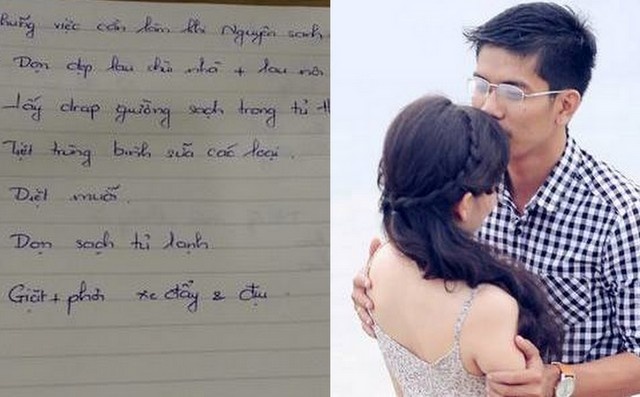 việc cần làm khi Nguyên sanh
Dọn dẹp lau chùi nhà + lau
Lấy drap giường sạch trong tủ
Tiệt trùng bình sữa các loại.
Diệt muỗi.
Dọn sạch tủ lạnh
Giặt + phơi xe đẩy & địu